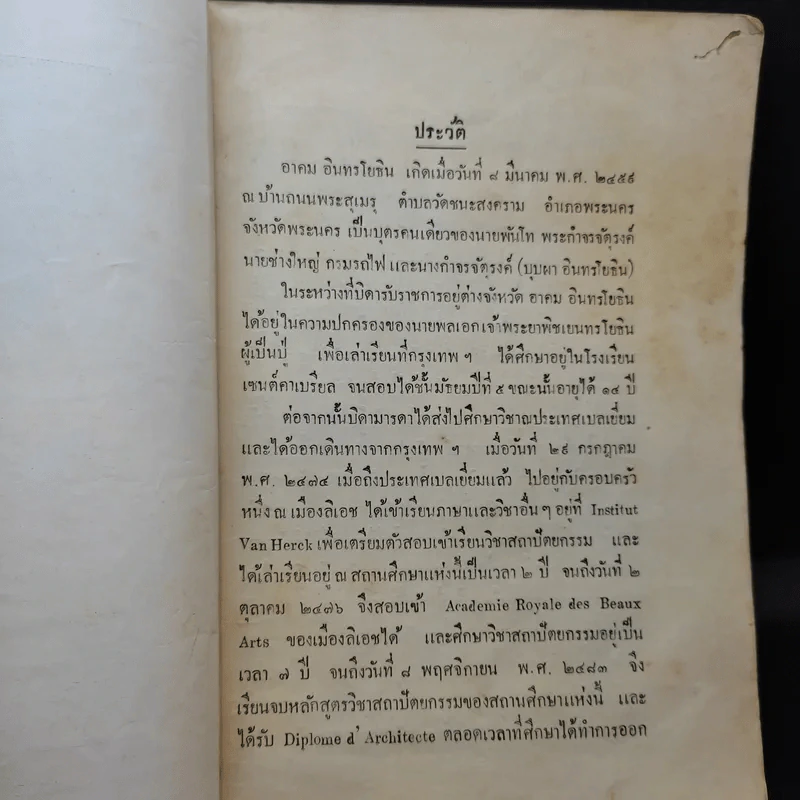 ประวัติ
อาคม อินทรโยธิน เกิดเมื่อวันที่ ๘ มีนาคม พ.ศ. ๒๔๕๙
ณ บ้านถนนพระสุเมรุ ตำบลวัดชนะสงคราม อำเภอพระนคร
จังหวัดพระนคร เป็นบุตรคนเดียวของนายพันโท พระกำจรจัตุรงค์
นายช่างใหญ่ กรมรถไฟ และนางกำจรจัตุรงค์ (บุบผา อินทรโยธิน)
ในระหว่างที่บิดารับราชการอยู่ต่างจังหวัด อาคม อินทรโยธิน
ได้อยู่ในความปกครองของนายพลเอกเจ้าพระยาพิชเยนทรโยธิน
ผู้เป็นปู่ เพื่อเล่าเรียนที่กรุงเทพ ฯ ได้ศึกษาอยู่ในโรงเรียน
เซนต์คาเบรียล จนสอบได้ชั้นมัธยมปีที่ ๕ ขณะนั้นอายุได้ ๑๔ ปี
ต่อจากนั้นบิดามารดาได้ส่งไปศึกษาวิชาณประเทศเบลเยี่ยม
และได้ออกเดินทางจากกรุงเทพ ฯ เมื่อวันที่ ๒๙ กรกฎาคม
พ.ศ. ๒๔๗๔ เมื่อถึงประเทศเบลเยี่ยมแล้ว ไปอยู่กับครอบครัว
หนึ่ง ณ เมืองลิเอช ได้เข้าเรียนภาษาและวิชาอื่น ๆ อยู่ที่ Institut
Van Herck เพื่อเตรียมตัวสอบเข้าเรียนวิชาสถาปัตยกรรม และ
ได้เล่าเรียนอยู่ ณ สถานศึกษาแห่งนี้เป็นเวลา ๒ ปี จนถึงวันที่ ๒
ตุลาคม ๒๔๗๖ จึงสอบเข้า Academie Royale des Beaux
Arts ของเมืองลิเอชได้ และศึกษาวิชาสถาปัตยกรรมอยู่เป็น
เวลา ๗ ปี จนถึงวันที่ ๘ พฤศจิกายน พ.ศ. ๒๔๘๓ จึง
เรียนจบหลักสูตรวิชาสถาปัตยกรรมของสถานศึกษาแห่งนี้ และ
ได้รับ Diplome d' Architecte ตลอดเวลาที่ศึกษาได้ทำการออก